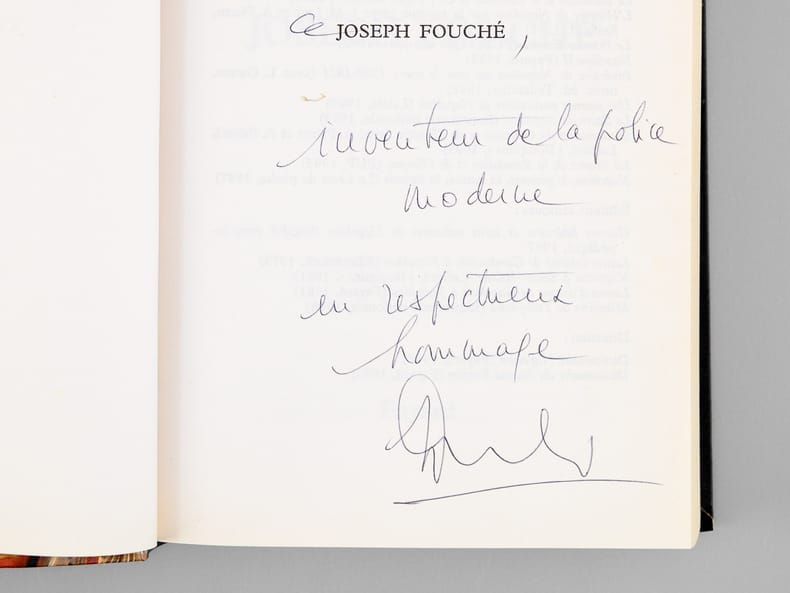 ce JOSEPH FOUCHÉ,
inventeur de la police
moderne
en respectueux
hommage